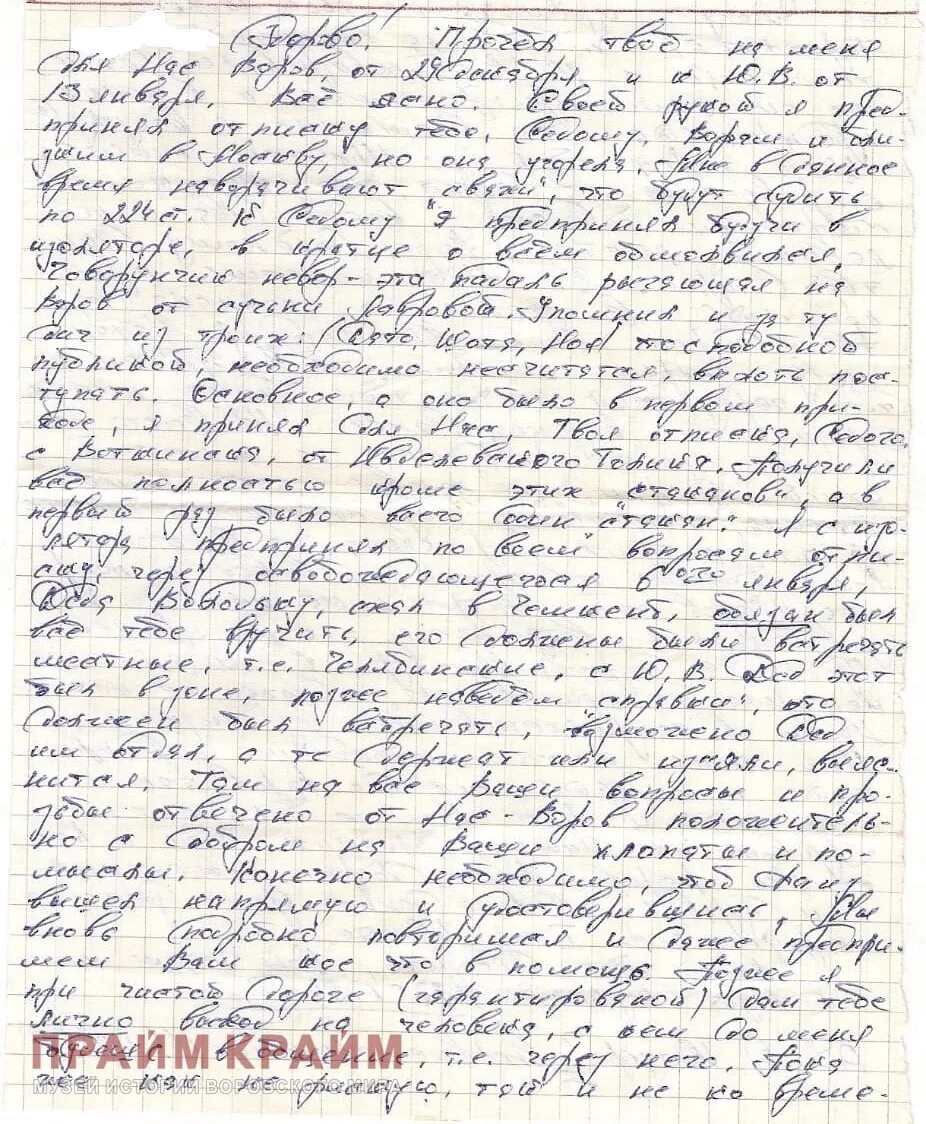 Здорово! Прочёл твоё на меня
для Нас Воров, от 29 декабря и к Ю.В. от
13 января. Всё ясно. Своей рукой я пред-
принял отписку тебе, Седому, Ворам и бли-
жним в Москву, но она угорела. Мне в данное
время наворачивают "связи", что будут судить
по 224 ст. К Седому я предпринял будучи в
изоляторе, в кратце о всём обмолвился.
Говорунчик невор- эта падаль рычающая на
Воров от сучьни Лавровой. Упомнил и за ту
дич из троих: (Дато, Шотя, Ноя) что с подобной
публикой, необходимо несчитатся, вплоть пос-
тупать. Основное, а оно было в первом при-
ходе, я принял для Нас, Твоя отписка, Седого,
с Воткинска, от Ивдельского Толика. Получили
всё полностью кроме этих "стаканов", а в
первый раз было всего один "стакан". Я с изо-
лятора предпринял по всем вопросам отпи-
ску, через освобождающегося в января,
Деда Володьку, ехал в Чемкент, обязан был
всё тебе вручить, его должены были встречать
местные, т.е. Челябинские, с Ю.В. Дед этот
был в зоне, позже наведём "справки", кто
должен был встречать, возможено Дед
им отдал, а те держат или изъяли, выяс-
нится. Там на все Ваши вопросы и про-
зьбы отвечено от Нас - Воров положитель-
но с добром на Ваши хлопаты и по-
мыслы. Конечно необходимо, чтоб
вышел напрямую и удостоверившись, Мы
вновь подробно повторимся и даже предпри-
мем Вам кое что в помощь. Позже я
при чистой дороге (гарантированой) дам тебе
лично выход на человека, с кем до меня
будешь в общении, т.е. через него. Пока
что как не рискую, так и не ко време-
ПРАЙМ КРАЙМ
МУЗЕЙ ИСТОРИИ ВОРОВСКОГО МИРА